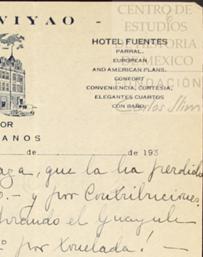 VIYAO -
CENTRO DE
ESTUDIOS
DE HISTORIA
DE MEXICO
FUNDACIÓN
Carlos Slim
HOTEL FUENTES
PARRAL.
EUROPEAN
AND AMERICAN PLANS.
CONFORT
CONVENIENCIA, CORTESIA,
ELEGANTES CUARTOS
CON BAÑO.
OR
ANOS
de de 193
que la ha perdido
- y por Contribuciones
el Guayule
por tonelada! -